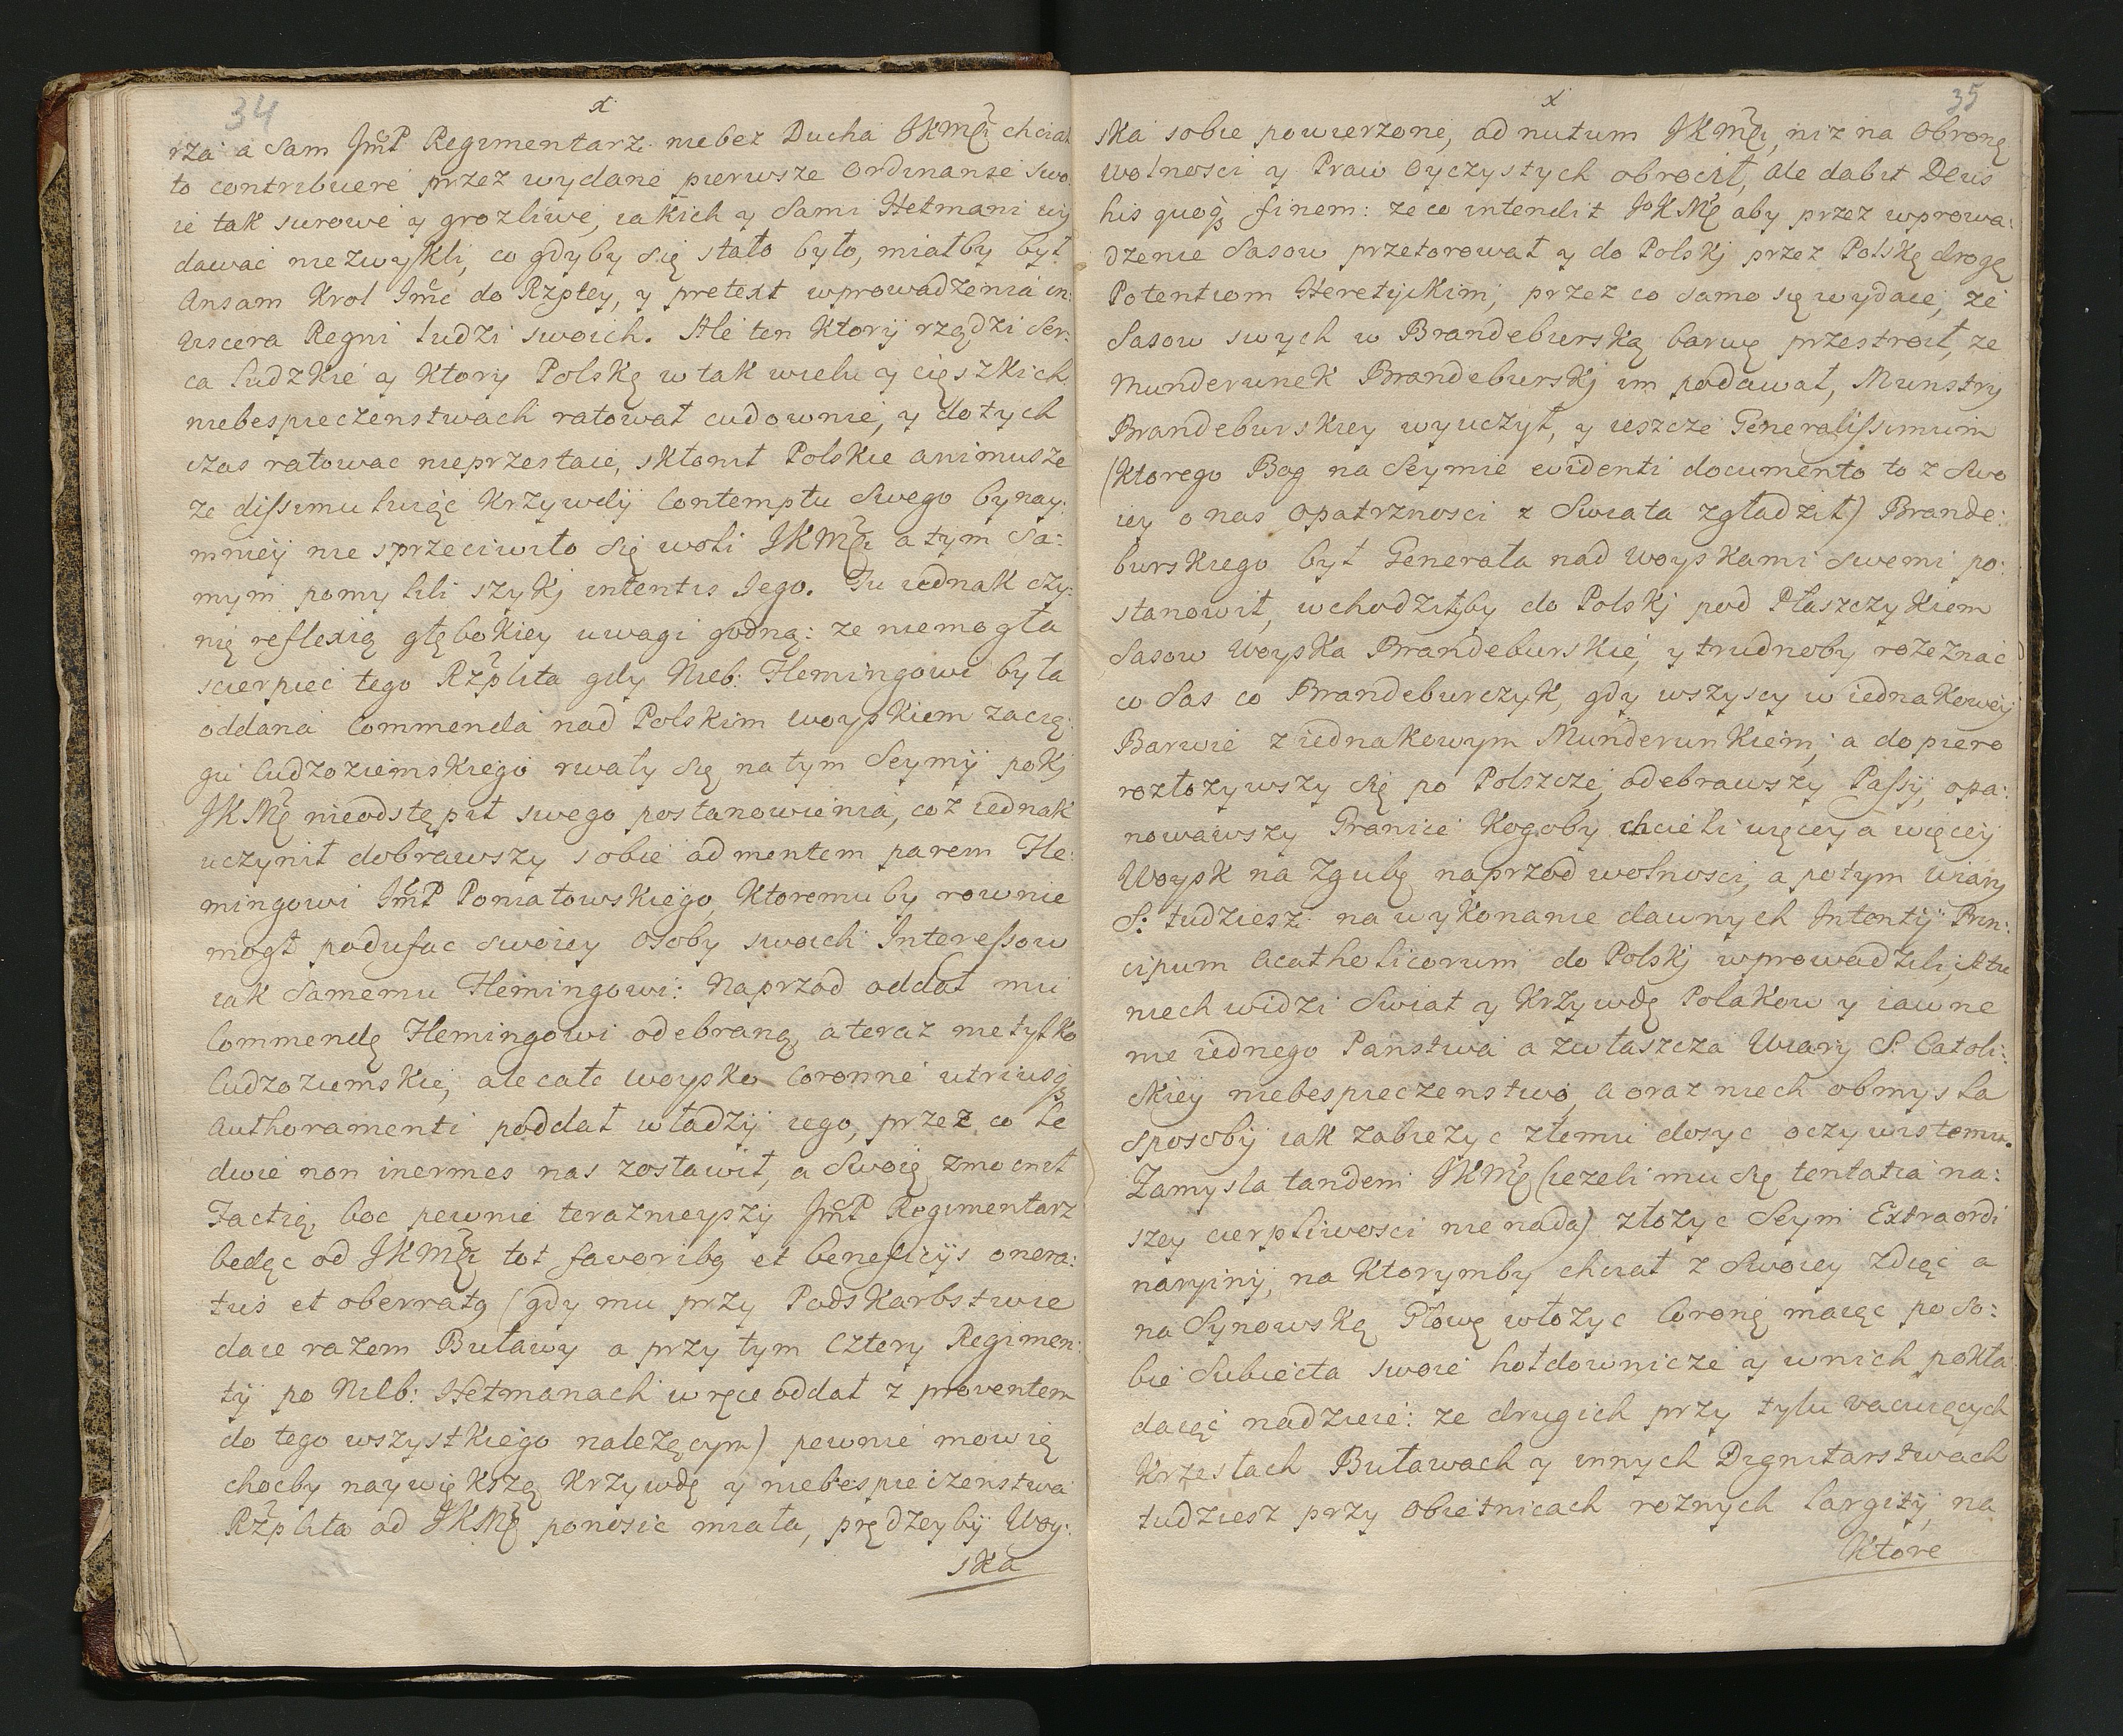 34
x
rza a Sam JmP Regimentarz niebez Ducha JKMci chciał
to contribuere przez wydane pierwsze ordinanse swo:
ie tak surowe y grozliwe, iakich y Sami Hetmani wy
dawać niezwykli, co gdyby się stało było, miałby był
Ansam Krol Jmc do Rzptey, y pretext wprowadzenia in:
viscera Regni ludzi swoich. Ale ten Ktory rządzi Ser:
ca ludzkie y Ktory Polskę w tak wielu y cięszkich
niebespieczenstwach ratował cudownie, y dotych
czas ratowac nieprzestaie, skłonił Polskie animusze
ze dissimuluiąc Krzywdy Contemptu Swego bynay:
mniey nie sprzeciwiło się woli JKMci a tym Sa:
mym pomylili szyki intentis Jego. Tu iednak czy:
nię reflexią głębokiey uwagi godną: ze niemogła
scierpiec tego Rzplita gdy Nieb: Flemingowi była
oddana Commenda nad Polskim woyskiem zacią:
gu Cudzoziemskiego rwały się na tym Seymy poki
JKMć nieodstąpił swego postanowienia, coż iednak
uczynił dobrawszy sobie ad mentem parem Fle:
mingowi JmP Poniatowskiego, Ktoremuby rownie
mogł podufac swoiey osoby swoich Interessow
iak Samemu Flemingowi: Naprzod oddał mu
Commendę Flemingowi odebraną, a teraz nietylko
Cudzoziemskie, ale całe woysko Coronne utriusq
Authoramenti poddał władzy iego, przez co le
dwie non inermes nas zostawił, a Swoię zmocnił
Factię, boc pewnie terazneyszy JmP Regimentarz
bedąc od JKMci tot favoribq et beneficijs onera:
tus et oberratq (gdy mu przy Podskarbstwie
daie razem Buławy a przy tym Cztery Regimen:
ty po Nieb: Hetmanach w ręce oddał z proventem
do tego wszystkiego należącym) pewnie mowię
choćby naywiększą Krzywdę y niebespieczenstwa
Rzplita od JKMć ponosic miała, prędzeyby Woy:
ska
35
x
ska sobie powierzone, ad nutum JKMci, niz na obronę
wolnosci y Praw Oyczystych obrocił, ale dabit Deus
his quoq finem: ze co intendit JoKMć aby przez wprowa:
dzenie Sasow przetorował y do Polski przez Polskę drogę
Potentiom Heretyckim, przez co samo się wydaie, że
Sasow swych w Brandeburską barwę przestroił, ze
Munderunek Brandeburski im podawał, Munstry
Brandeburskiey wyuczył, y ieszcze Generalissimum
(Ktorego Bog na Seymie evidenti documento to z Swo
iey o nas opatrznosci z Swiata zgładził) Brande:
burskiego był Generała nad Woyskami swemi po:
stanowił, wchodziłyby do Polski pod Płaszczykiem
Sasow Woyska Brandeburskie, y trudnoby rozeznać
co Sas co Brandeburczyk, gdy wszyscy w iednakowey
Barwie z iednakowym Munderunkiem; a dopiero
rozłozywszy się po Polszcze, odebrawszy Passy, opa:
nowawszy Granice Kogoby chcieli więcey a więcey
Woysk na zgubę naprzod wolnosci, a potym Wiary
S. tudziesz na wykonanie dawnych Intentij Prin:
cipum Acatholicorum do Polski wprowadzili, A tu
niech widzi Swiat y Krzywdę Polakow y iawne
nie iednego Panstwa a zwłaszcza Wiary S. Catoli:
ckiey niebespieczenstwo, a oraz niech obmysla
sposoby iak zabieżyc złemu dosyc oczywistemu.
Zamysla tandem JKMć (iezeli mu się tentatia na:
szey cierpliwosci nienada) złozyc Seym Extraordi
naryiny, na Ktorymby chciał z Swoiey zdiąć a
na Synowską Głowę włożyc Coronę maiąc po So:
bie Subiecta swoie hołdownicze y wnich pokła
daiąc nadzieie: ze drugich przy tylu vacuiących
Krzesłach Buławach y innych Dignitarstwach
tudziesz przy obietnicach roznych largity, na
Ktore